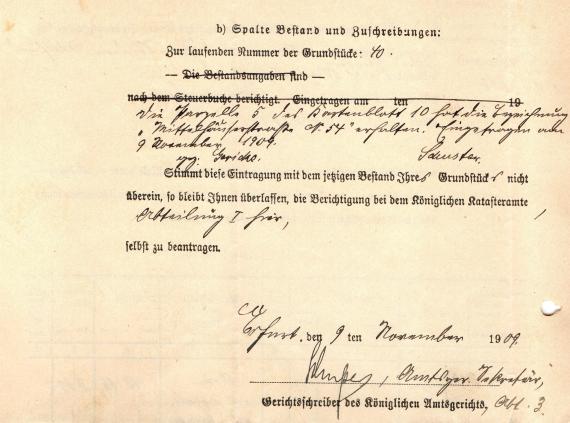 b) Spalte Bestand und Zuschreibungen:
Zur laufenden Nummer der Grundstücke: 40.
— Die Bestandsangaben sind —
nach dem Steuerbuche berichtigt. Eingetragen am ten 19
Die Parzelle 5 des Kartenblatt 10 hat die Bezeichnung
„Mittelhäuserstrasse N. 54" erhalten. Eingetragen am
9 November 1909.
gez. Schuster.
Stimmt diese Eintragung mit dem jetzigen Bestand Ihres Grundstücks nicht
überein, so bleibt Ihnen überlassen, die Berichtigung bei dem Königlichen Katasteramte
Abteilung I hier,
selbst zu beantragen.
Erfurt, den 9 ten November 1909.
, Amtsger. Sekretär,
Gerichtsschreiber des Königlichen Amtsgerichts, Abt. 3.